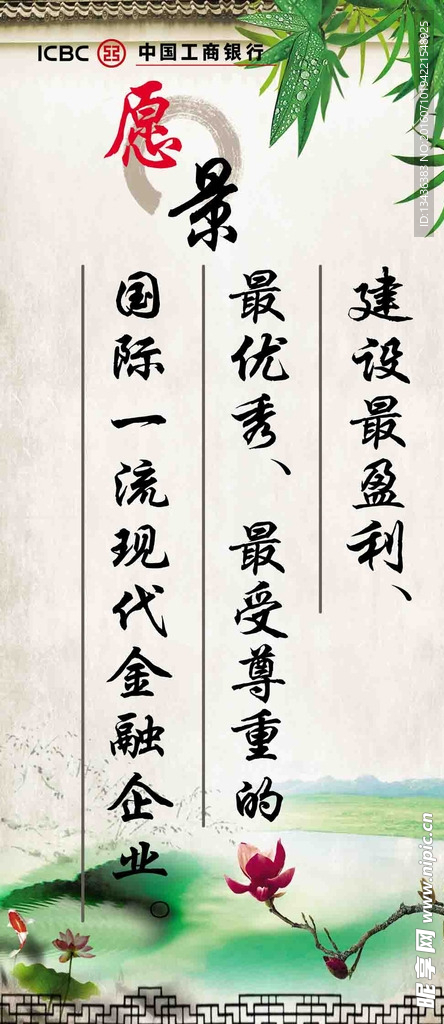 ICBC 中国工商银行
愿景
建设最盈利、
最优秀、最受尊重的
国际一流现代金融企业。
ID:13436383 NO:20160710194221548925
昵享网 www.nipic.cn